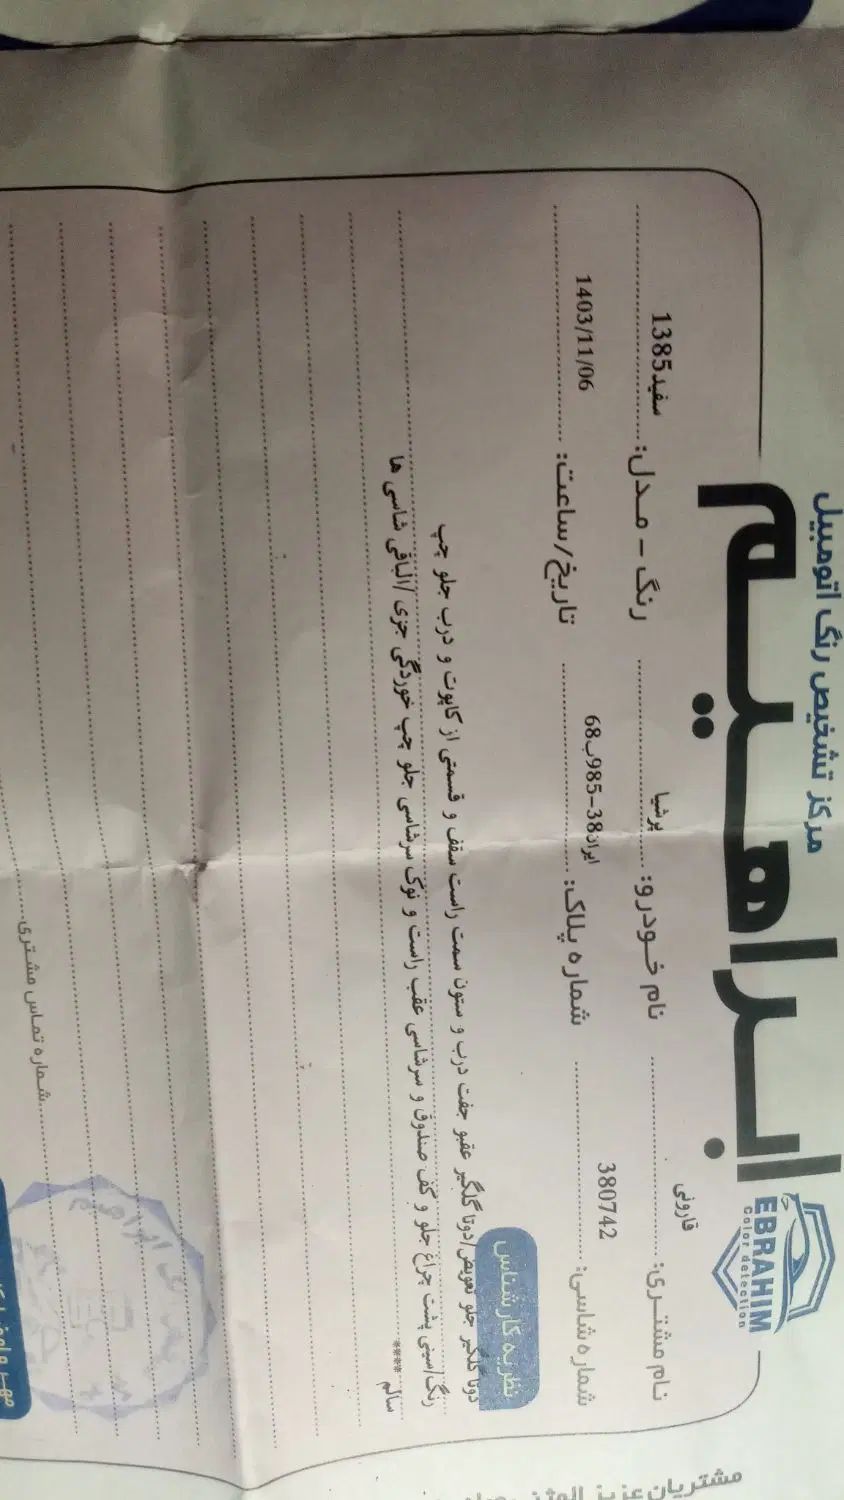 مرکز تشخیص رنگ اتومبیل
ابراهیم
EBRAHIM
Color detection
نام مشتری: قارونی
نام خودرو: پرشیا
رنگ - مدل: سفید1385
شماره شاسی: 380742
شماره پلاک: ایران38-985ب68
تاریخ/ساعت: 1403/11/06
نظریه کارشناس
دوتا گلگیر جلو تعویض/دوتا گلگیر عقبو جفت درب و ستون سمت راست سقف و قسمتی از کاپوت و درب جلو چپ
رنگ/سینی پشت چراغ جلو و کف صندوق و سرشاسی عقب راست و نوک سرشاسی جلو چپ خوردگی جزی /الباقی شاسی ها
سالم ****
شماره تماس مشتری
مشتریان عزیز